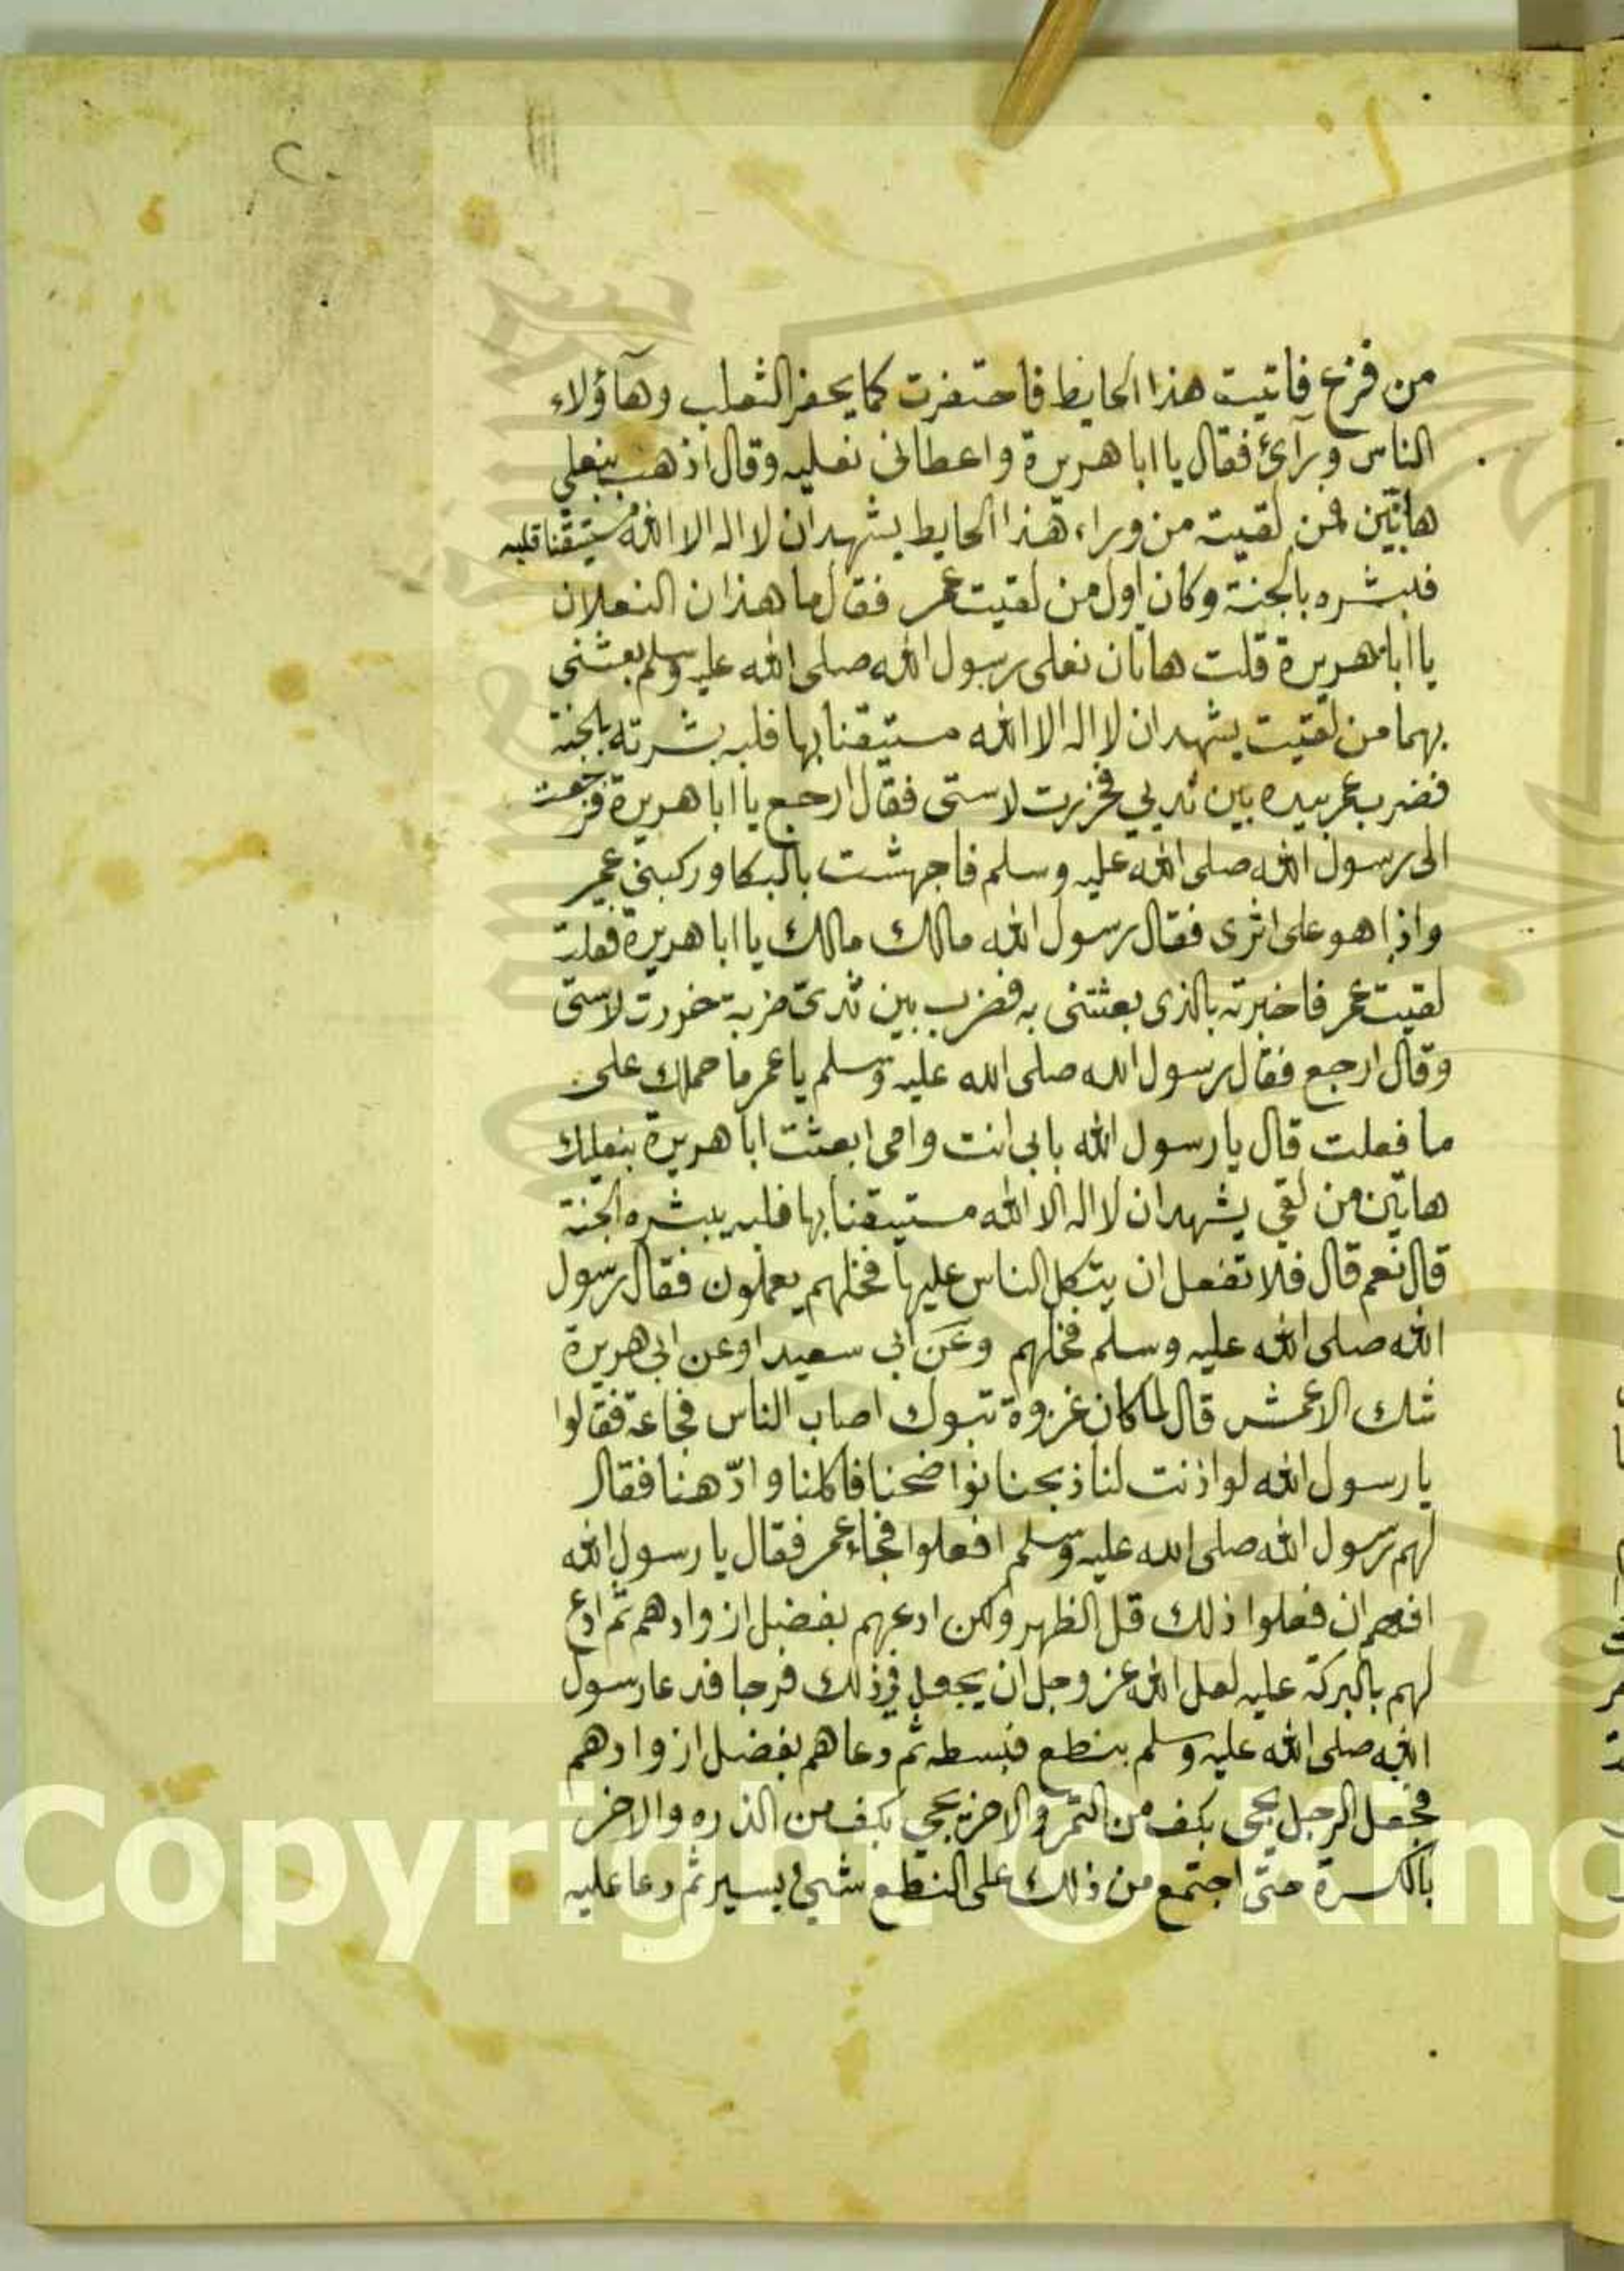 ٢٠
من فزع فاتيت هذا الحايط فاحتفرت كما يحفر الثعلب وهآؤلاء
الناس ورآئ فقال يا ابا هريرة واعطانى نعليه وقال اذهب بنعلي
هاتين فمن لقيت من وراء هذا الحايط يشهد ان لا اله الا الله مستيقنا قلبه
فبشره بالجنة وكان اول من لقيت عمر فقال ما هذان النعلان
يا ابا هريرة قلت هاتان نعلى رسول الله صلى الله عليه وسلم بعثنى
بهما من لقيت يشهد ان لا اله الا الله مستيقنا بها قلبه بشرته بالجنة
فضرب عمر بيده بين ثديي فخررت لاستى فقال ارجع يا ابا هريرة فرجعت
الى رسول الله صلى الله عليه وسلم فاجهشت بالبكا وركبني عمر
واذا هو على اثرى فقال رسول الله مالك مالك يا ابا هريرة فقلت
لقيت عمر فاخبرته بالذى بعثتنى به فضرب بين ثدى ضربة خررت لاستى
وقال ارجع فقال رسول الله صلى الله عليه وسلم يا عمر ما حملك على
ما فعلت قال يا رسول الله بابى انت وامى ابعثت ابا هريرة بنعليك
هاتين من لقي يشهد ان لا اله الا الله مستيقنا بها قلبه يبشره الجنة
قال نعم قال فلا تفعل ان يتكل الناس عليها فخلهم يعملون فقال رسول
الله صلى الله عليه وسلم فخلهم وعن ابى سعيد او عن ابى هريرة
شك الاعمش قال لما كان غزوة تبوك اصاب الناس مجاعة فقالوا
يا رسول الله لو اذنت لنا ذبحنا نواضحنا فاكلنا وادّهنا فقال
لهم رسول الله صلى الله عليه وسلم افعلوا فجاء عمر فقال يا رسول الله
ان فعلوا ذلك قل الظهر ولكن ادعهم بفضل ازوادهم ثم ادع
لهم بالبركة عليه لعل الله عز وجل ان يجعل في ذلك فرجا فدعا رسول
الله صلى الله عليه وسلم بنطع فبسطه ثم دعاهم بفضل ازوادهم
فجعل الرجل يجى بكف من التمر والاخر يجي بكف من الذره والاخر
بالكسرة حتى اجتمع من ذلك على النطع شيئ يسير ثم دعا عليه
Copyright © King